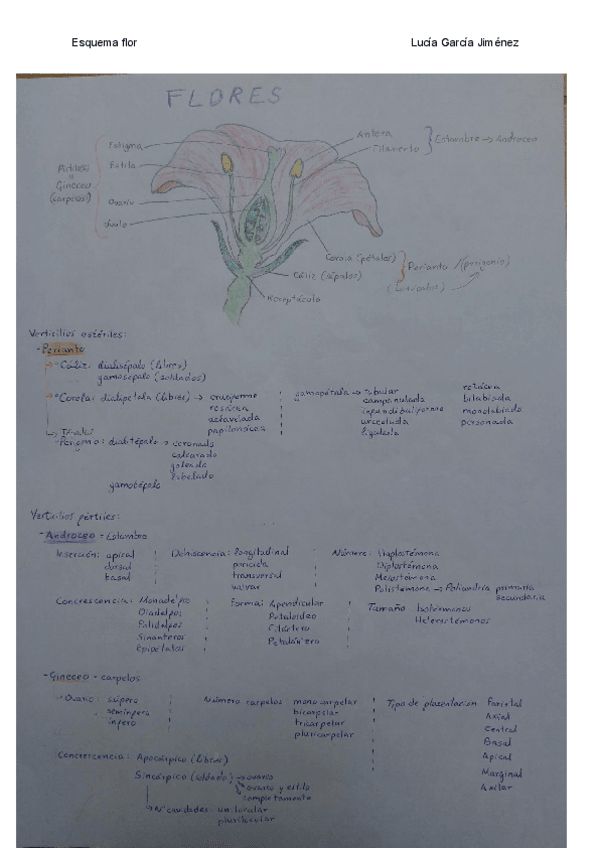 Esquema flor
Lucía García Jiménez
FLORES
Estigma
Estilo
Ovario
óvulo
Gineceo
(carpelos)
Antera
Filamento
Estambre → Androceo
Corola (pétalos)
Cáliz (sépalos)
Perianto /(perigonio)
Receptáculo
Verticilios estériles:
-Perianto
Cáliz: dialisépalo (libres)
gamosépalo (soldados)
Corola: dialipétala (libres) → cruciforme
rosácea
aclavelada
papilionácea
gamopétala → tubular
campanulada
infundibuliforme
urceolada
ligulada
rotácea
bilabiada
monolabiada
personada
Perigonio: dialitépalo → coronado
calcarado
galeado
labelado
gamotépalo
Verticilios fértiles:
-Androceo - Estambre
Inserción: apical
dorsal
basal
Dehiscencia: longitudinal
poricida
transversal
valvar
Número: Haplostémona
Diplostémona
Meiostémona
Polistémona → Poliandria primaria
secundaria
Concrescencia: Monadelfos
Diadelfos
Poliadelfos
Sinanteros
Epipétalos
Forma: Apendicular
Petaloideo
Tamaño Isostémonos
Heterostémonos
-Gineceo - carpelos
-Ovario: súpero
semínfero
ínfero
Número carpelos monocarpelar
bicarpelar
tricarpelar
pluricarpelar
Tipo de placentación Parietal
Axial
Central
Basal
Apical
Marginal
Concrescencia: Apocárpico (libres)
Sincárpico (soldado) → ovario
ovario y estilo
completamente
Nº cavidades: unilocular
plurilocular